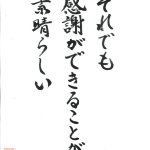 それでも
感謝ができることが
素晴らしい